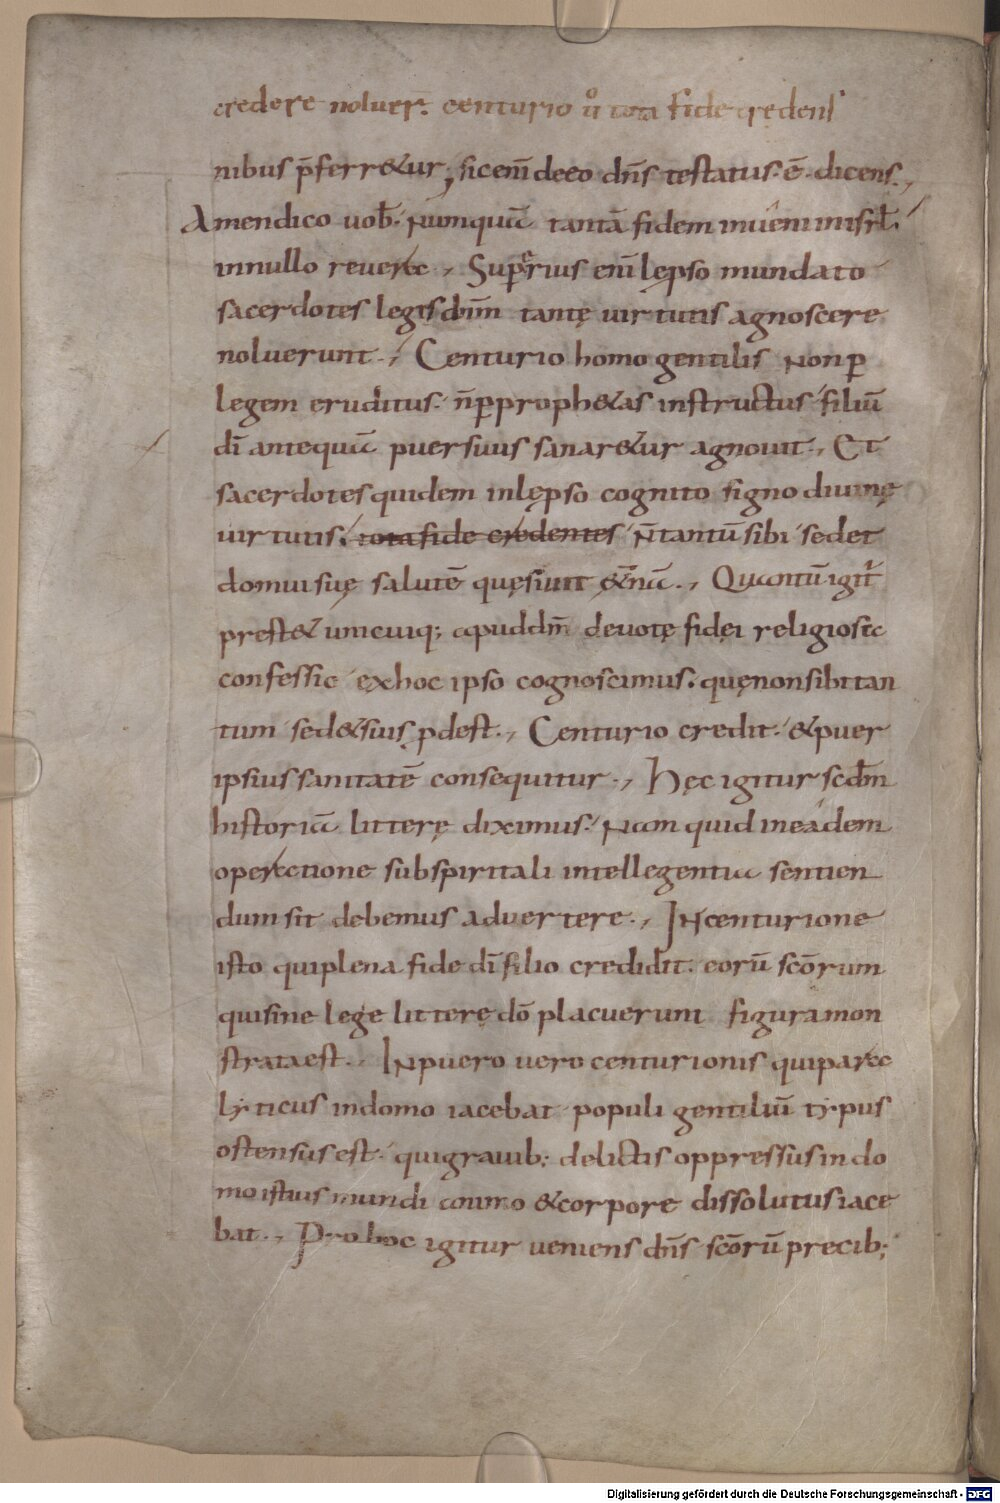 credere noluer̄. centurio ů tota fide credens
nibus p̄ferr&ur, sicem̄ deeo dn̄s testatus·ē· dicens.,
Amendico uob̄· Numquā tantā fidem inueni inisrl̄·
innullo reuera., Superius enī lępso mundato
sacerdotes legis dnm̄ tantę uirtutis agnoscere
noluerunt., Centurio homo gentilis Nonꝑ
legem eruditus· n̄ꝑproph&as instructus filiū
dī antequā puersuus sanar&ur agnouit., Et
sacerdotesquidem inlępso cognito signo diuinę
uirtutis. tota fide credentes N̄tantū sibi sedet
domuisuę salutē quęsiuit &ęrnā., Quantū igit̄
prest& unicuiq; apuddm̄ deuotę fidei religiosa
confessio exhoc ipso cognoscimus. quęnonsibitan
tum sed&suis ꝓdest., Centurio credit· &puer
ipsius sanitatē consequitur., Hęc igitur scdm̄
historiā litterę diximus· Nam quid ineadem
operatione subspiritali intellegentia sentien
dumsit debemus aduertere., INcenturione
isto quiplena fide dī filio credidit· eorū scōrum
quisine lege litterę dō placuerunt figuramon
strataest., INpuero uero centurionis quipara
lyticus indomo iacebat populi gentiliū typus
ostensus est· quigrauib; delictis oppressus indo
moistius mundi animo &corpore dissolutusiace
bat., Prohoc igitur ueniens dn̄s scōrū precib;
Digitalisierung gefördert durch die Deutsche Forschungsgemeinschaft - DFG